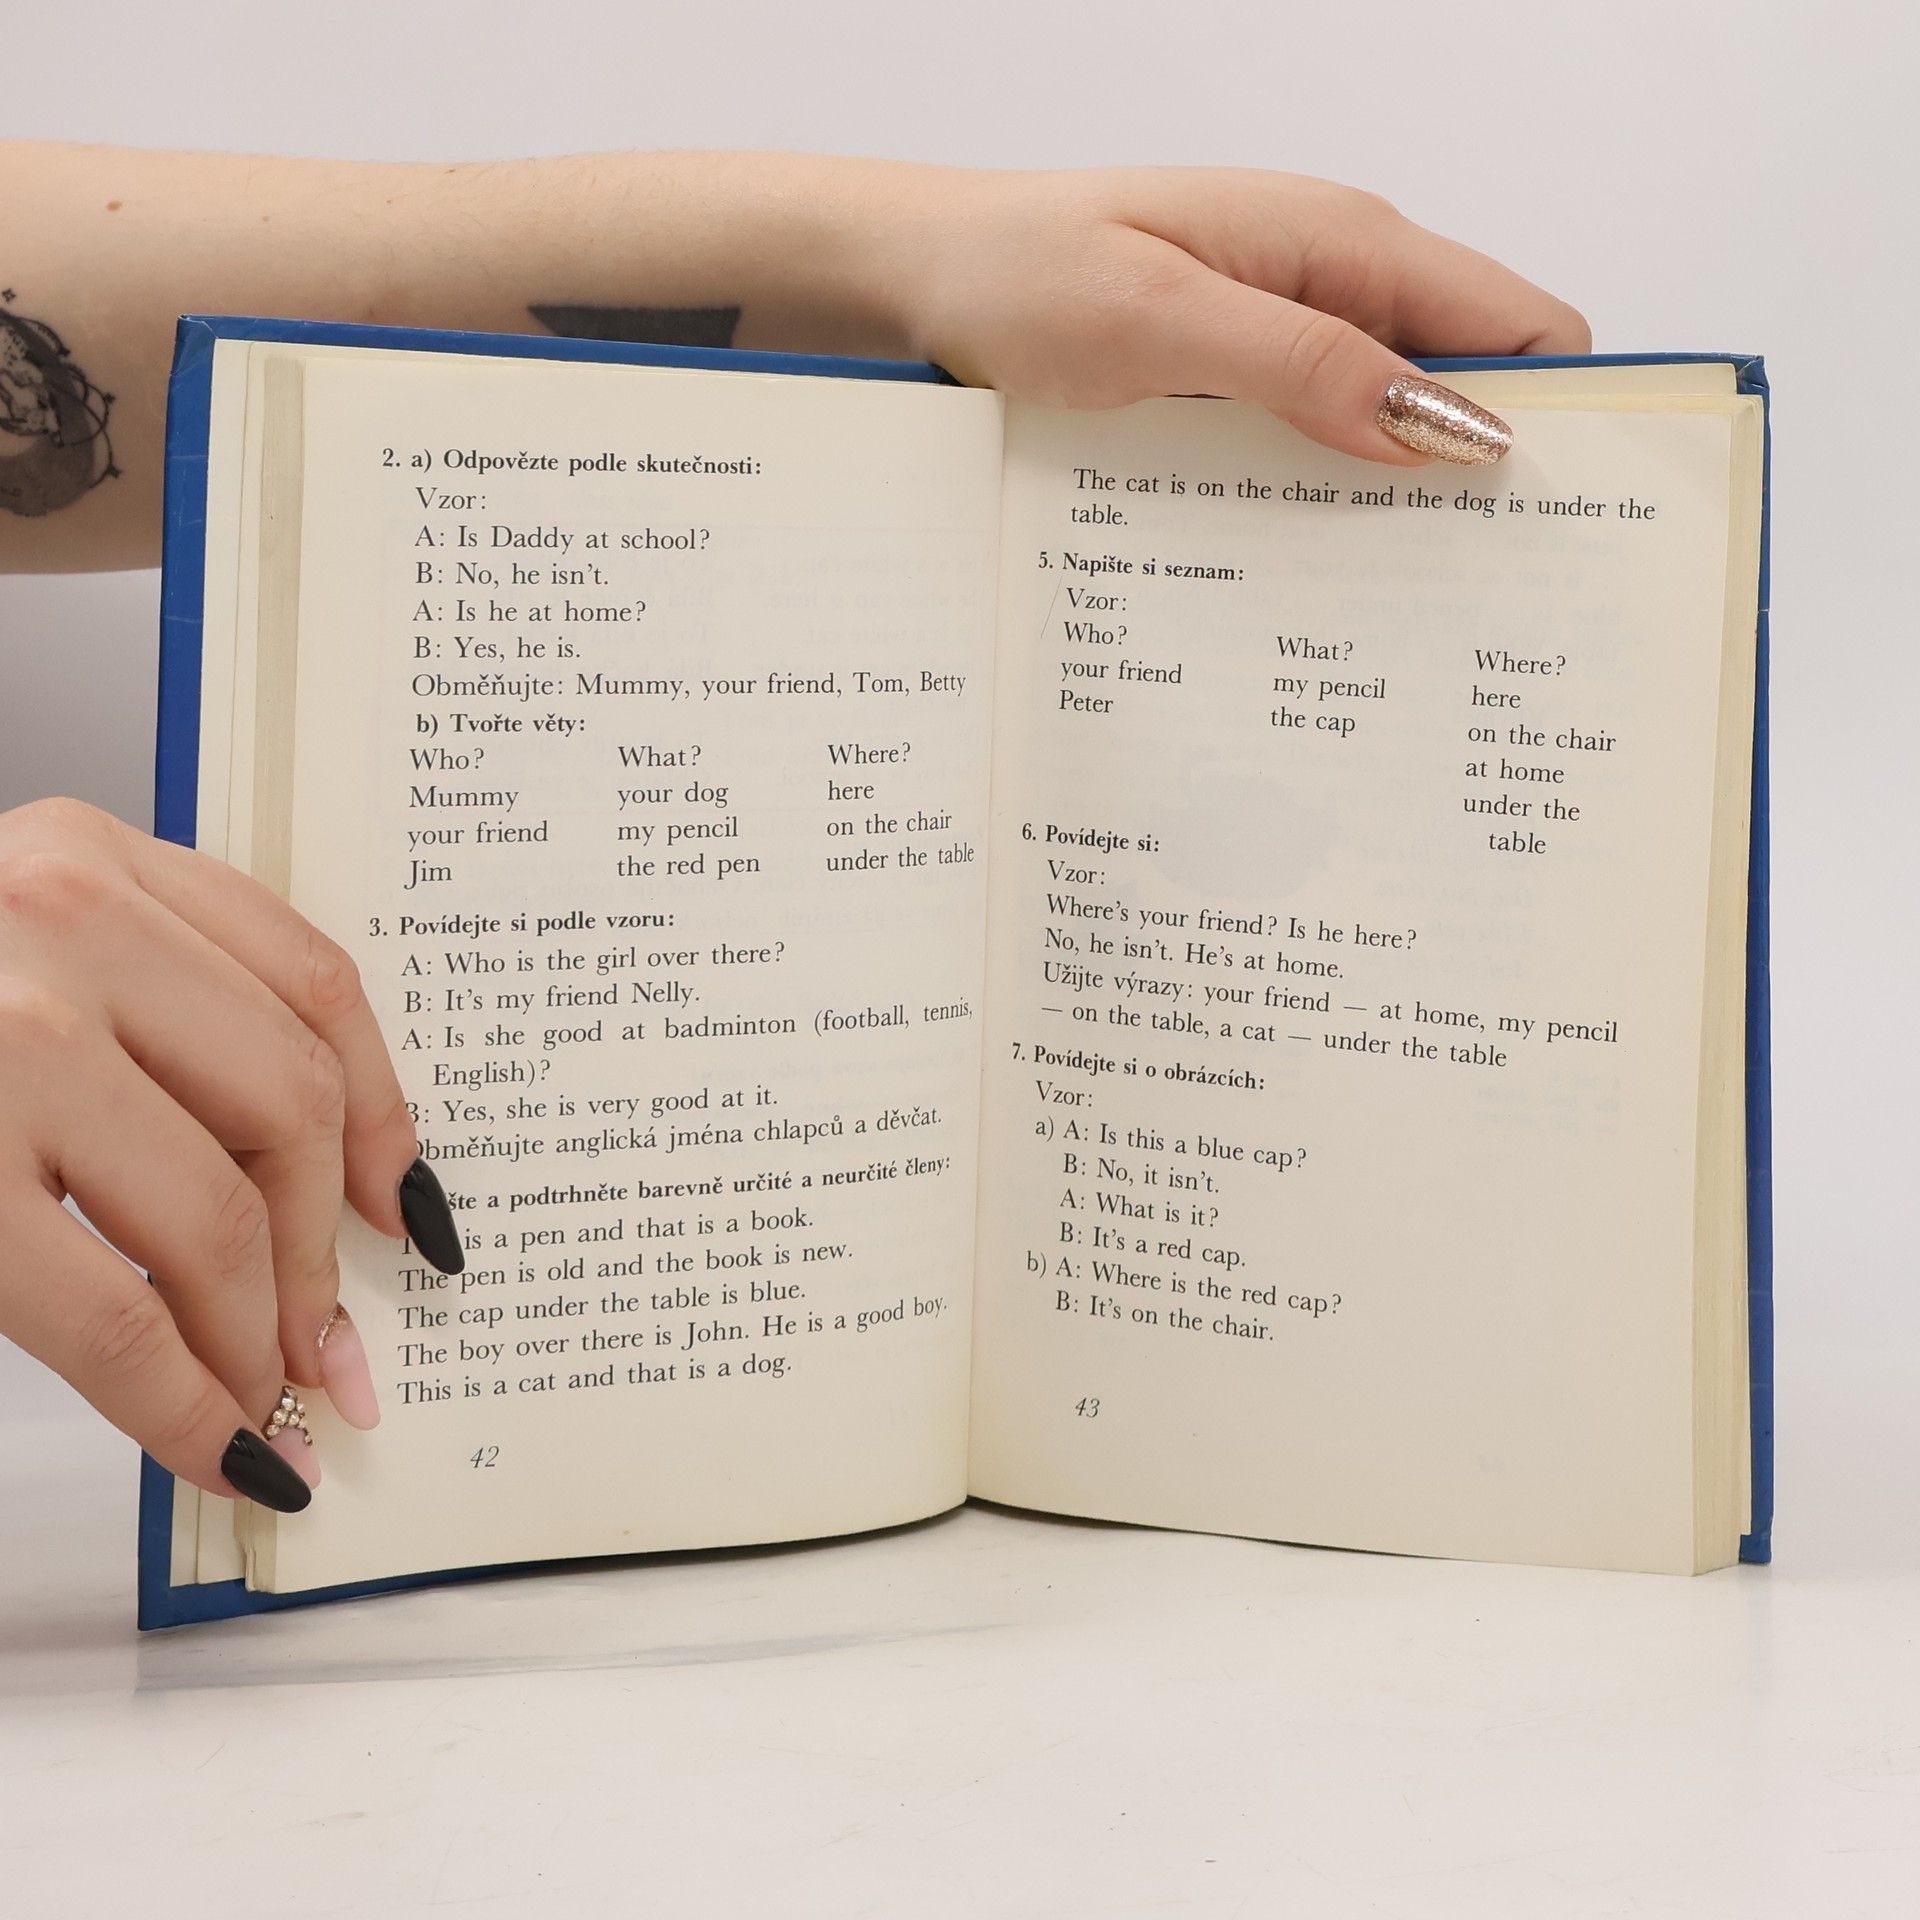 2. a) Odpovězte podle skutečnosti:
Vzor:
A: Is Daddy at school?
B: No, he isn't.
A: Is he at home?
B: Yes, he is.
Obměňujte: Mummy, your friend, Tom, Betty
b) Tvořte věty:
Who? What? Where?
Mummy your dog here
your friend my pencil on the chair
Jim the red pen under the table
3. Povídejte si podle vzoru:
A: Who is the girl over there?
B: It's my friend Nelly.
A: Is she good at badminton (football, tennis,
English)?
B: Yes, she is very good at it.
Obměňujte anglická jména chlapců a děvčat.
a podtrhněte barevně určité a neurčité členy:
is a pen and that is a book.
The pen is old and the book is new.
The cap under the table is blue.
The boy over there is John. He is a good boy.
This is a cat and that is a dog.
42
The cat is on the chair and the dog is under the
table.
5. Napište si seznam:
Vzor:
Who? What? Where?
your friend my pencil here
Peter the cap on the chair
at home
under the
table
6. Povídejte si:
Vzor:
Where's your friend? Is he here?
No, he isn't. He's at home.
Užijte výrazy: your friend — at home, my pencil
— on the table, a cat — under the table
7. Povídejte si o obrázcích:
Vzor:
a) A: Is this a blue cap?
B: No, it isn't.
A: What is it?
B: It's a red cap.
b) A: Where is the red cap?
B: It's on the chair.
43